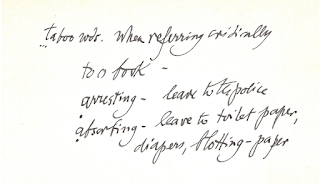 taboo wds. When referring critically
to a book -
arresting - leave to the police
absorbing - leave to toilet paper,
diapers, blotting-paper